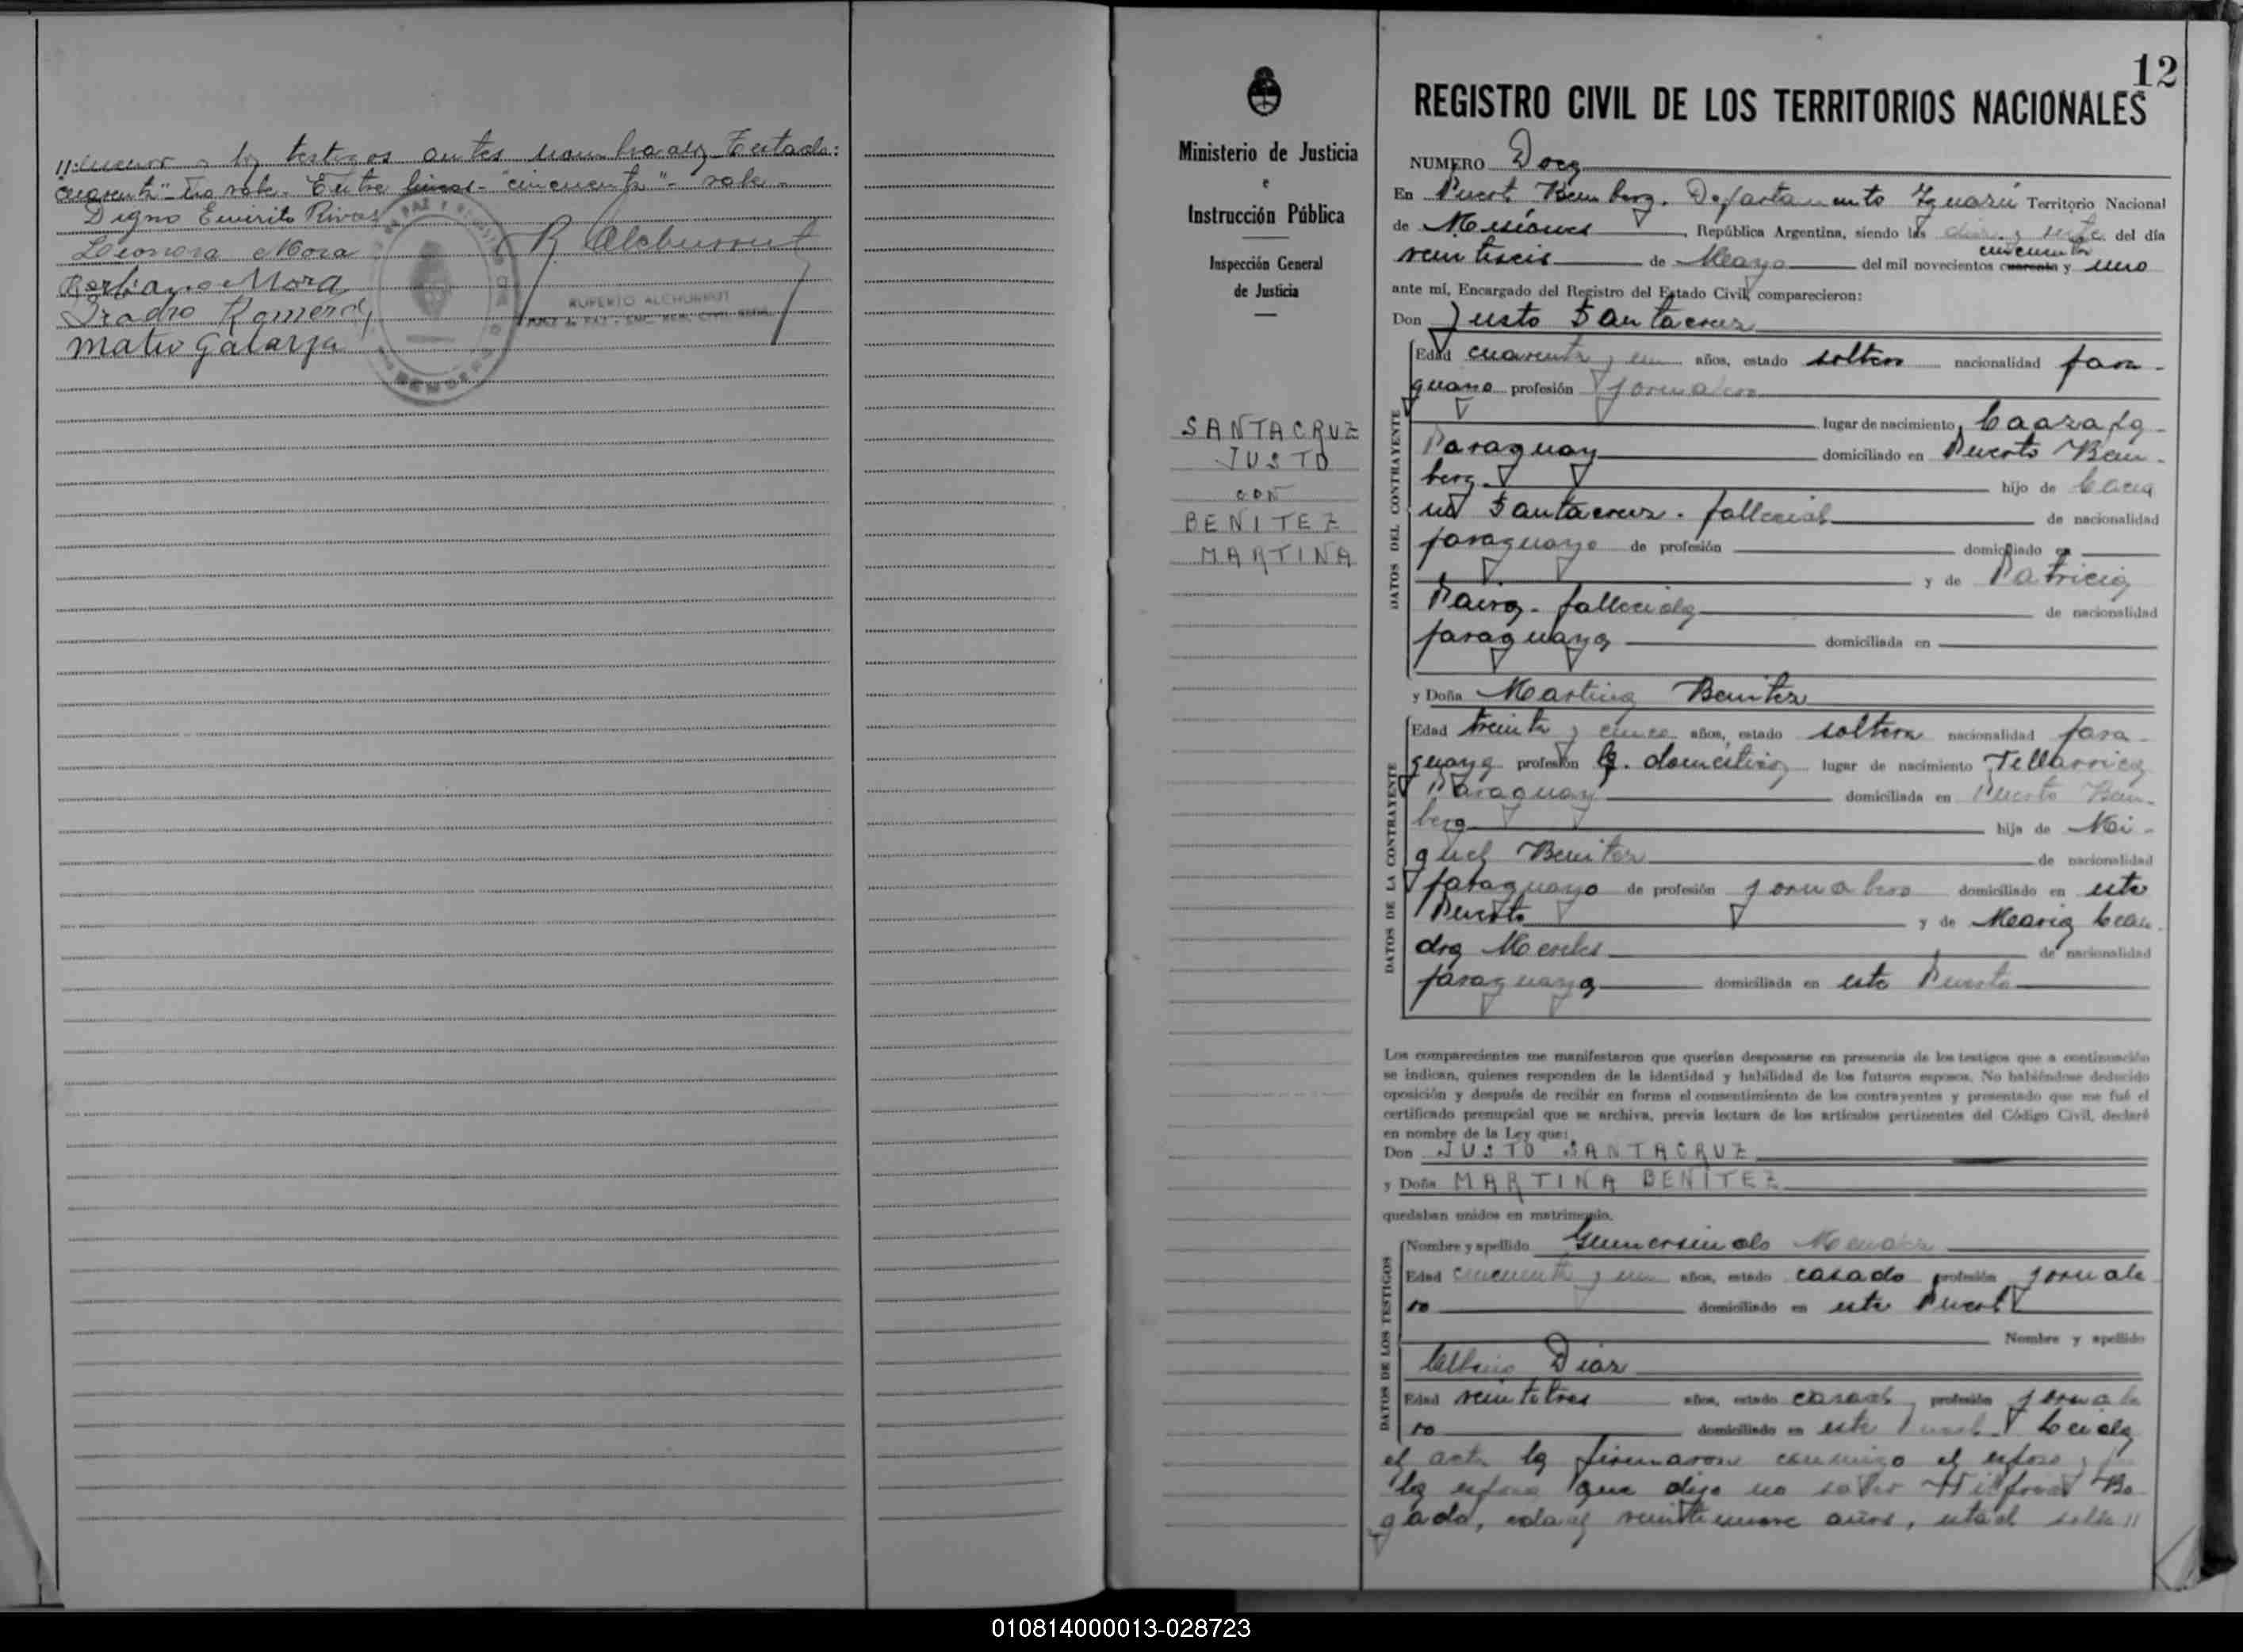 //menor y los testigos antes nombrados. Testado:
"cuarenta" no vale. Entre lineas - "cincuenta" - vale.
Digno Emerito Rivas
Leonora Mora
Mora
Romero
Mateo Galarza
RUPERTO ALCHURRUT
12
Ministerio de Justicia
e
Instrucción Pública
Inspección General
de Justicia
SANTACRUZ
JUSTO
CON
BENITEZ
MARTINA
REGISTRO CIVIL DE LOS TERRITORIOS NACIONALES
NUMERO Doce
En Puerto Bemberg. Departamento Iguazú Territorio Nacional
de Misiones, República Argentina, siendo las diez y siete del día
cincuenta
veintiseis de Mayo del mil novecientos cuarenta y uno
ante mí, Encargado del Registro del Estado Civil, comparecieron:
Don Justo Santacruz
DATOS DEL CONTRAYENTE
Edad cuarenta y un años, estado soltero nacionalidad para-
guayo profesión jornalero
lugar de nacimiento, Caazapa-
Paraguay domiciliado en Puerto Bem-
berg. hijo de
Santacruz. fallecido de nacionalidad
paraguayo de profesión domiciliado en
y de Patricia
fallecida de nacionalidad
paraguaya domiciliada en
y Doña Martina Benitez
DATOS DE LA CONTRAYENTE
Edad treinta y cinco años, estado soltera nacionalidad para-
guaya profesión q. domesticos lugar de nacimiento Villarrica
Paraguay domiciliada en Puerto Bem-
berg hija de Mi-
guel Benitez de nacionalidad
paraguayo de profesión jornalero domiciliado en este
Puerto y de Maria
Mereles de nacionalidad
paraguaya domiciliada en este Puerto
Los comparecientes me manifestaron que querían desposarse en presencia de los testigos que a continuación
se indican, quienes responden de la identidad y habilidad de los futuros esposos. No habiéndose deducido
oposición y después de recibir en forma el consentimiento de los contrayentes y presentado que me fué el
certificado prenupcial que se archiva, previa lectura de los artículos pertinentes del Código Civil, declaré
en nombre de la Ley que:
Don JUSTO SANTACRUZ
y Doña MARTINA BENITEZ
quedaban unidos en matrimonio.
DATOS DE LOS TESTIGOS
Nombre y apellido Gumersindo
Edad cincuenta y un años, estado casado profesión jornale
ro domiciliado en este Puerto
Nombre y apellido
Diaz
Edad veintitres años, estado casado, profesión jornale
ro domiciliado en este Puerto Leida
el acta la firmaron conmigo el esposo y por
la esposa que dijo no saber Bo
gado, edad veintinueve años, estado solte//
010814000013-028723